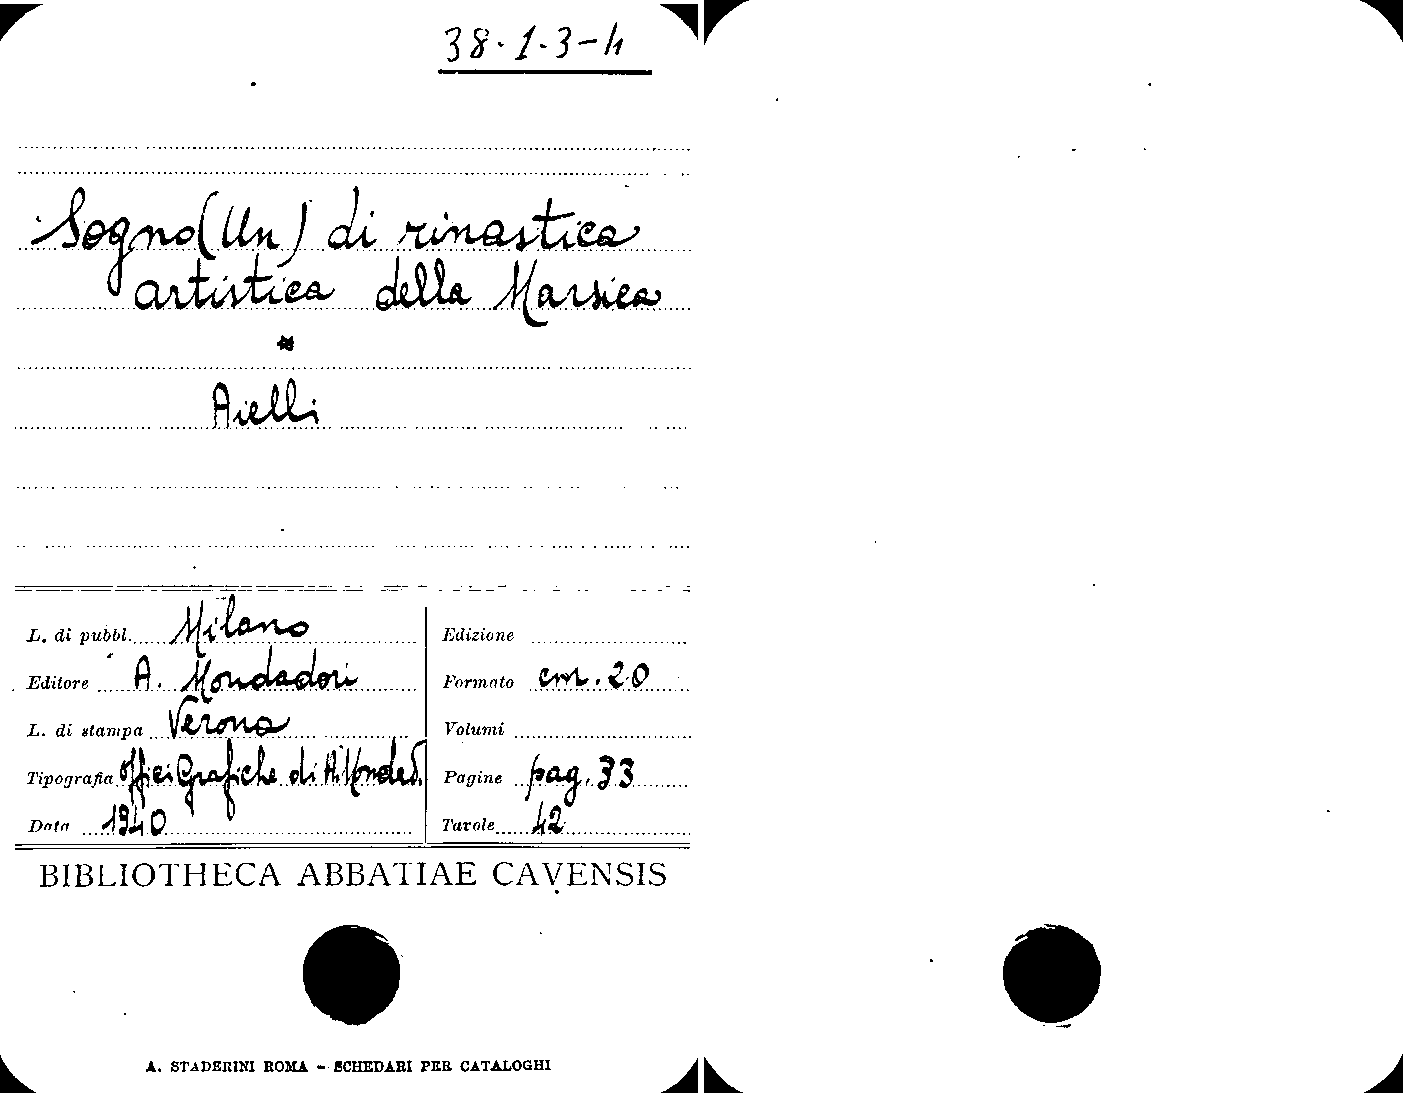 38-1-3-4
Sogno (Un) di rinastica
artistica della Marsica
*
Aielli
L. di pubbl. Milano
Editore A. Mondadori
L. di stampa Verona
Tipografia Offici Grafiche di A. Monded.
Data 1940
Edizione
Formato cm. 20
Volumi
Pagine pag. 33
Tavole 42
BIBLIOTHECA ABBATIAE CAVENSIS
A. STADERINI ROMA - SCHEDARI PER CATALOGHI